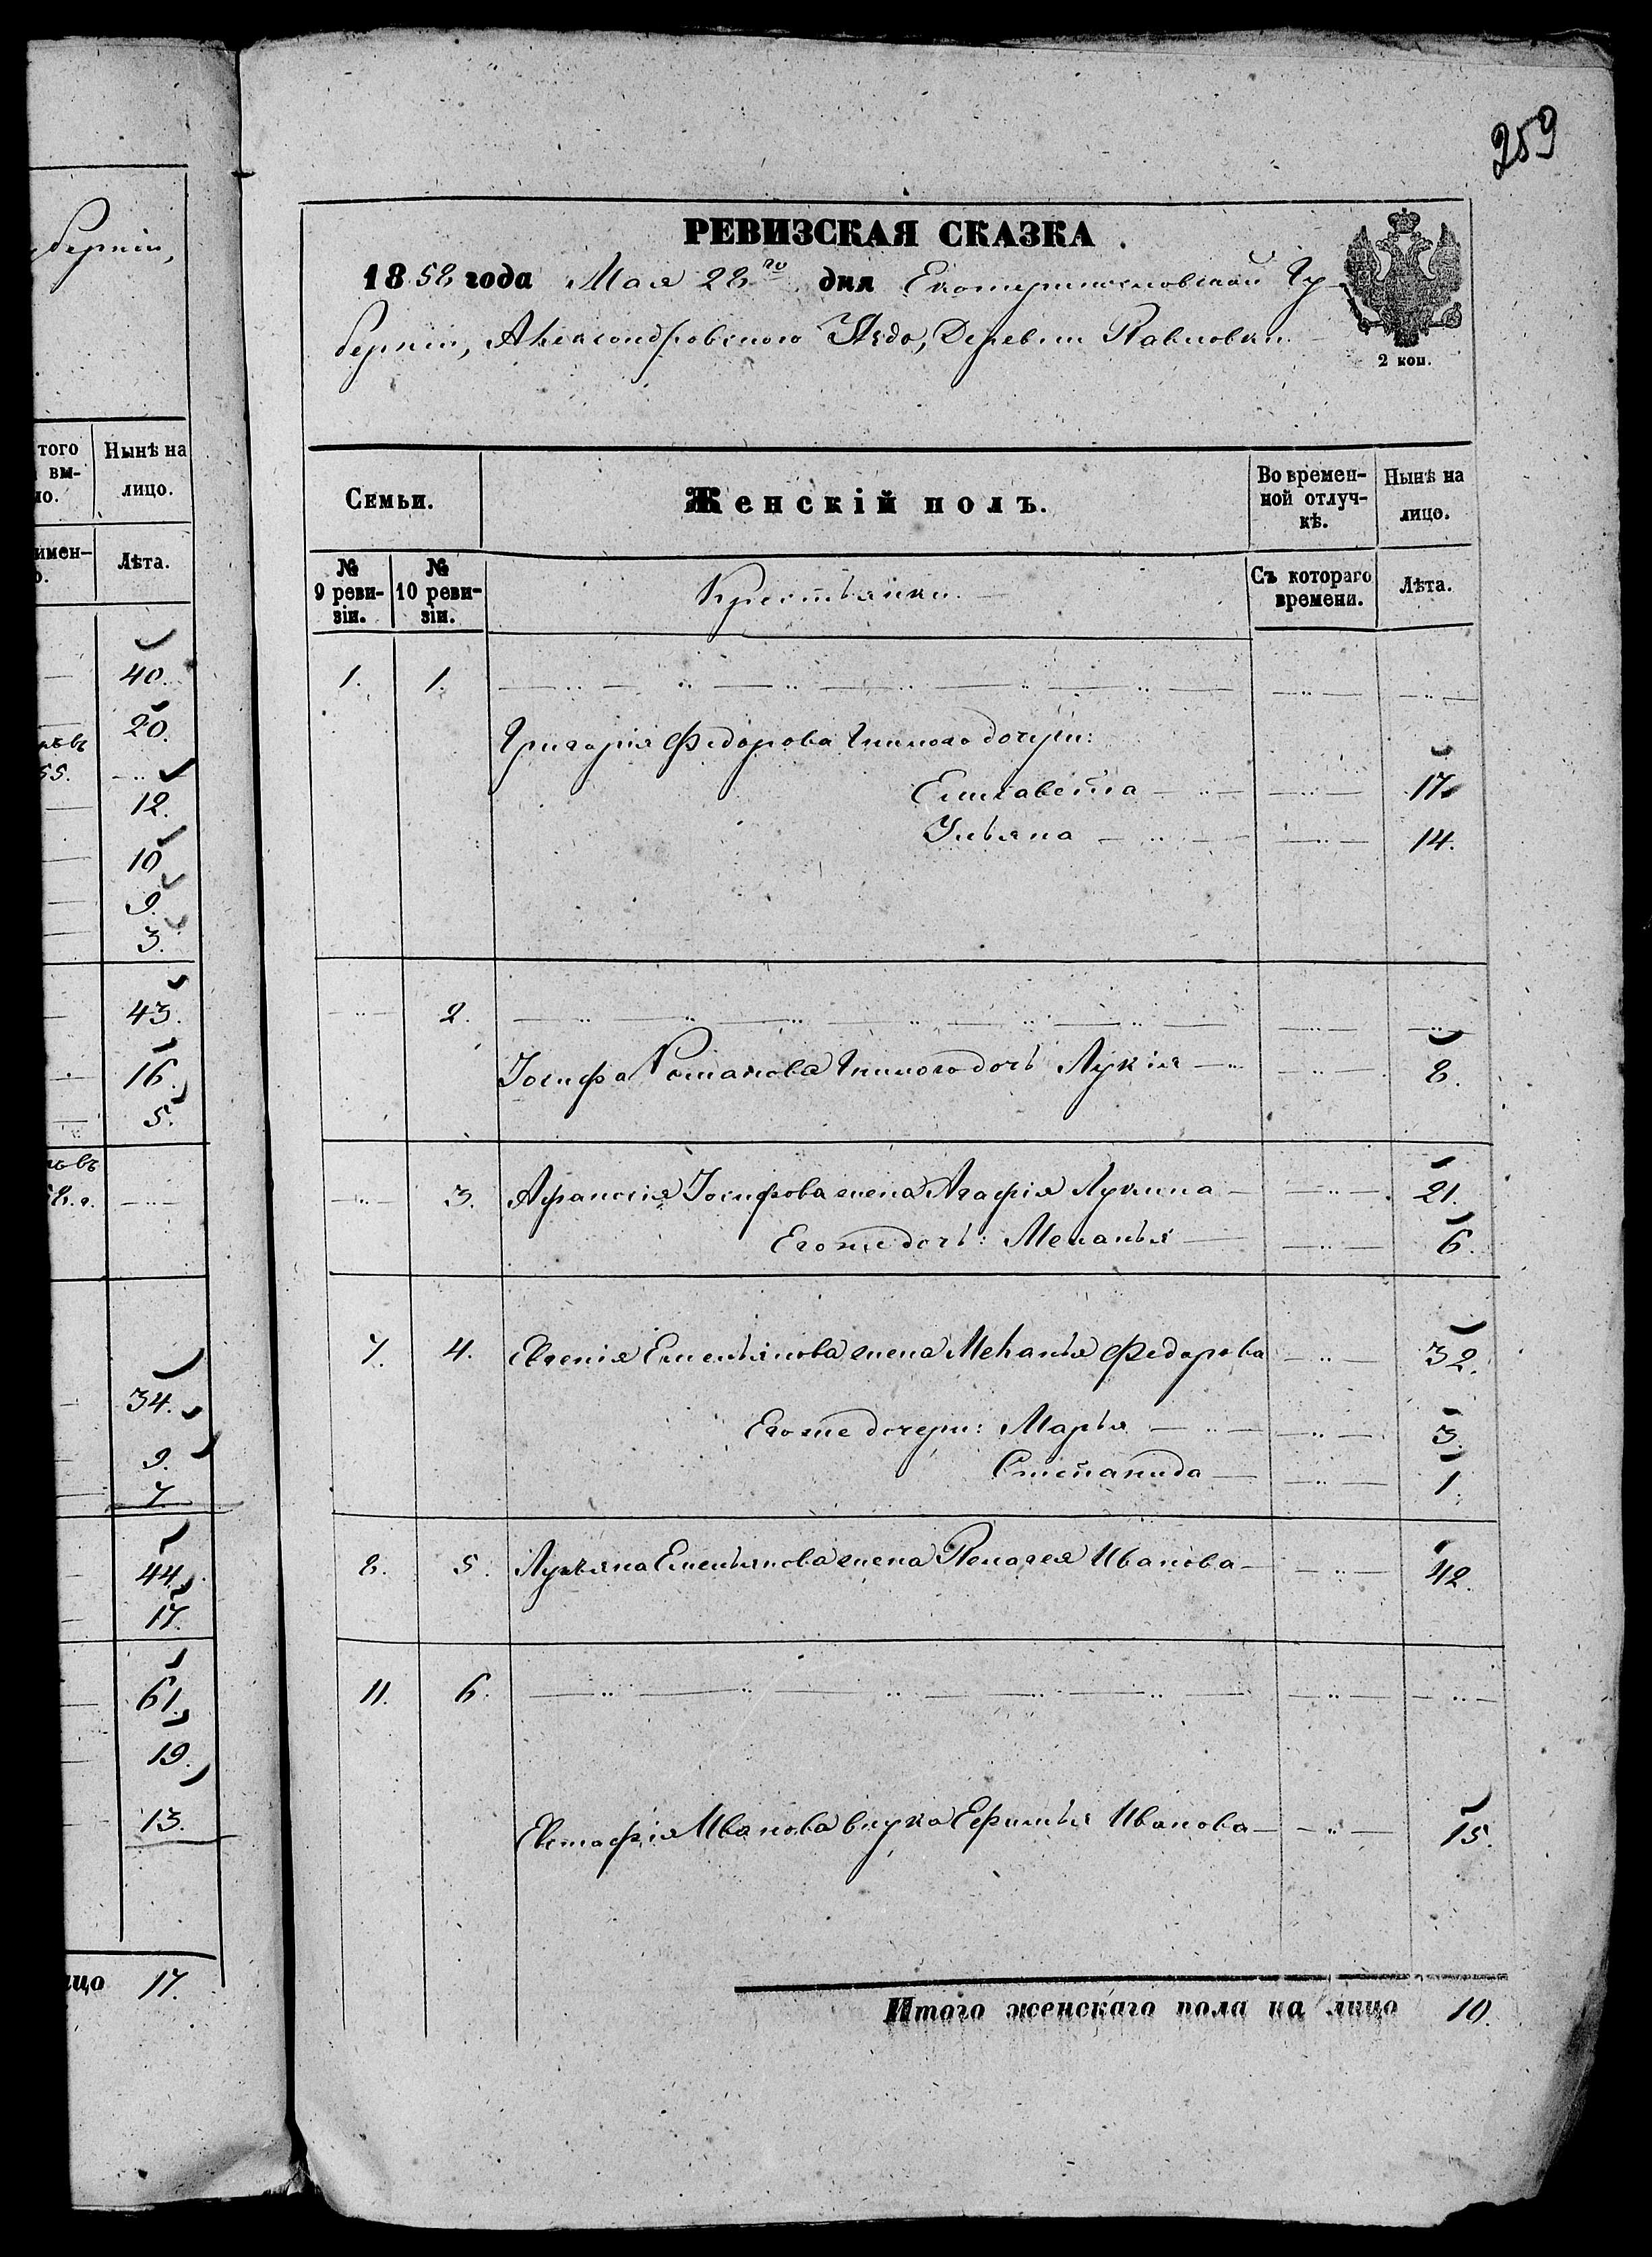 259
берніи,
РЕВИЗСКАЯ СКАЗКА.
1858 года Мая 28го дня Екатеринославской Гу-
берніи, Александровского Уѣзда, Деревни Павловки.
2 коп.
того
вы-
но.
Нынѣ на
лицо.
Лѣта.
40.
20.
55.
12.
10
9.
3.
43.
16.
5.
34.
9.
7.
44.
17.
61.
19.
13.
лицо 17.
Семьи.
Женскій полъ.
Во времен-
ной отлуч-
кѣ.
Нынѣ на
лицо.
№
9 реви-
зіи.
№
10 реви-
зіи.
Крестьянки.
Съ котораго
времени.
Лѣта.
1. 1.
Григорія Федорова Гнилого дочери:
Елисавета 17.
Ульяна 14.
2.
Іосифа Романова Гнилого дочь Лукія 8.
3. Афанасія Іосифова жена Агафія Лукина 21.
Его же дочь: Меланья 6.
7. 4. Евгенія Емельянова жена Меланья Федорова 32.
Его же дочери: Марья 3.
Степанида 1.
8. 5. Лукьяна Емельянова жена Пелагея Иванова 42.
11. 6.
Евстафія Иванова внука Ефимья Иванова 15.
Итого женскаго пола на лицо 10.